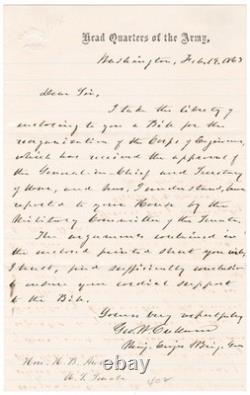 Head Quarters of the Army,
Washington, Feb. 19, 1863
Dear Sir,
I take the liberty of
enclosing to you a Bill for the
reorganization of the Corps of Engineers,
which has received the approval of
the General-in-Chief and Secretary
of War, and was, I understand,
reported to your House by the
Military Committee of the Senate.
The arguments contained in
the enclosed printed sheet you will,
I trust, find sufficiently conclusive
to ensure your cordial support
to the Bill.
Yours very respectfully
Geo. W. Cullum
Brig. Gen
Hon. H. B.
U. S. Senate